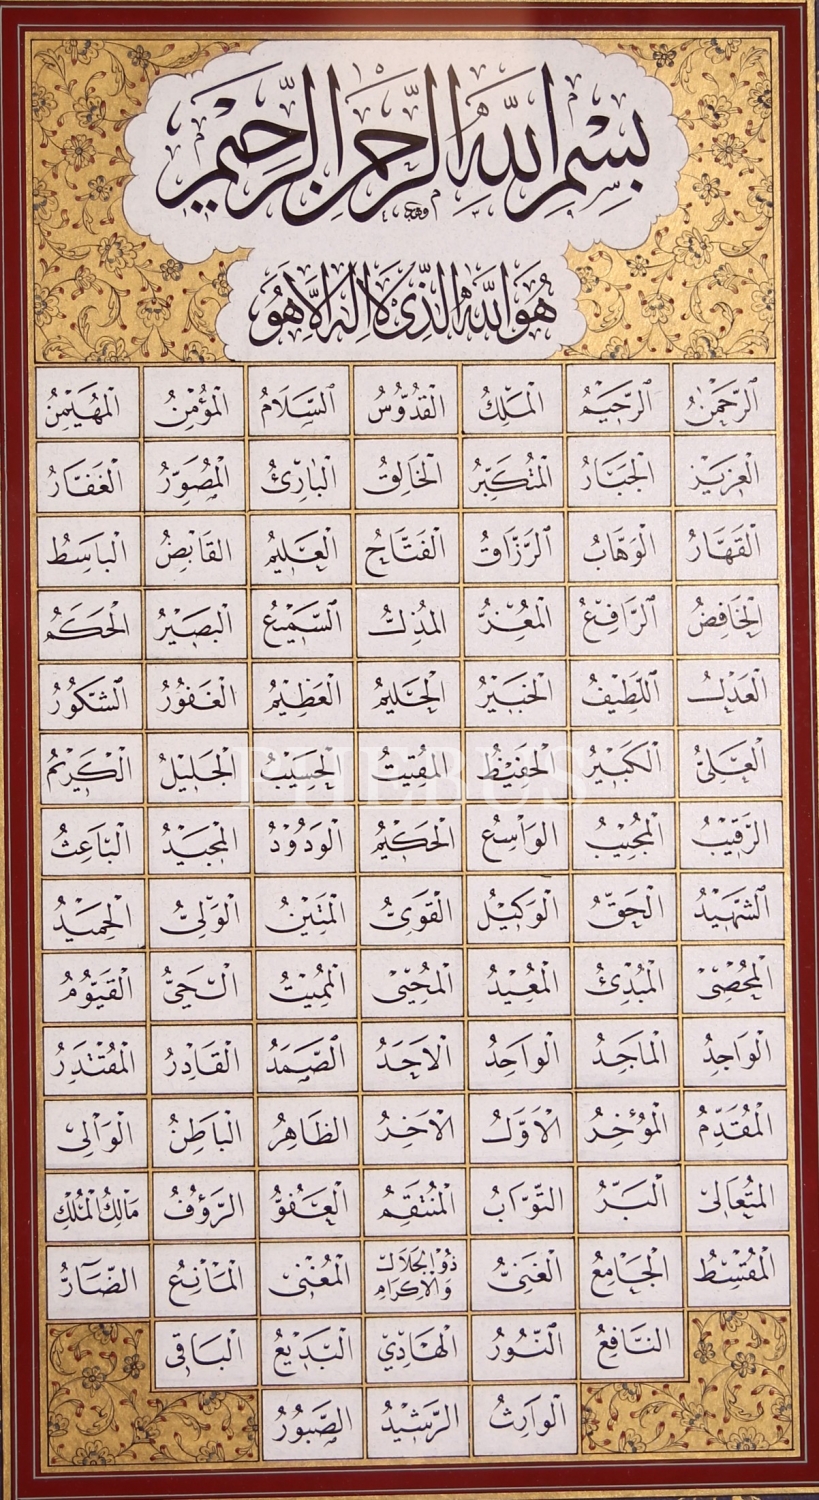 بِسْمِ اللهِ الرَّحْمنِ الرَّحِيْمِ
هُوَ اللهُ الَّذِى لَا اِلهَ اِلَّا هُوَ
الرَّحْمٰنُ الرَّحِيْمُ الْمَلِكُ الْقُدُّوْسُ السَّلَامُ الْمُؤْمِنُ الْمُهَيْمِنُ
الْعَزِيْزُ الْجَبَّارُ الْمُتَكَبِّرُ الْخَالِقُ الْبَارِئُ الْمُصَوِّرُ الْغَفَّارُ
الْقَهَّارُ الْوَهَّابُ الرَّزَّاقُ الْفَتَّاحُ الْعَلِيْمُ الْقَابِضُ الْبَاسِطُ
الْخَافِضُ الرَّافِعُ الْمُعِزُّ الْمُذِلُّ السَّمِيْعُ الْبَصِيْرُ الْحَكَمُ
الْعَدْلُ اللَّطِيْفُ الْخَبِيْرُ الْحَلِيْمُ الْعَظِيْمُ الْغَفُوْرُ الشَّكُوْرُ
الْعَلِىُّ الْكَبِيْرُ الْحَفِيْظُ الْمُقِيْتُ الْحَسِيْبُ الْجَلِيْلُ الْكَرِيْمُ
الرَّقِيْبُ الْمُجِيْبُ الْوَاسِعُ الْحَكِيْمُ الْوَدُوْدُ الْمَجِيْدُ الْبَاعِثُ
الشَّهِيْدُ الْحَقُّ الْوَكِيْلُ الْقَوِىُّ الْمَتِيْنُ الْوَلِىُّ الْحَمِيْدُ
الْمُحْصِىْ الْمُبْدِئُ الْمُعِيْدُ الْمُحْيِىْ الْمُمِيْتُ الْحَىُّ الْقَيُّوْمُ
الْوَاجِدُ الْمَاجِدُ الْوَاحِدُ الْاَحَدُ الصَّمَدُ الْقَادِرُ الْمُقْتَدِرُ
الْمُقَدِّمُ الْمُؤَخِّرُ الْاَوَّلُ الْاَخِرُ الظَّاهِرُ الْبَاطِنُ الْوَالِى
الْمُتَعَالِىْ الْبَرُّ التَّوَّابُ الْمُنْتَقِمُ الْعَفُوُّ الرَّؤُفُ مَالِكُ الْمُلْكِ
الْمُقْسِطُ الْجَامِعُ الْغَنِىُّ ذُوالْجَلَالِ وَالْاِكْرَامِ الْمُغْنِىْ الْمَانِعُ الضَّآرُّ
النَّافِعُ النُّوْرُ الْهَادِىْ الْبَدِيْعُ الْبَاقِى
الْوَارِثُ الرَّشِيْدُ الصَّبُوْرُ
PHEBUS